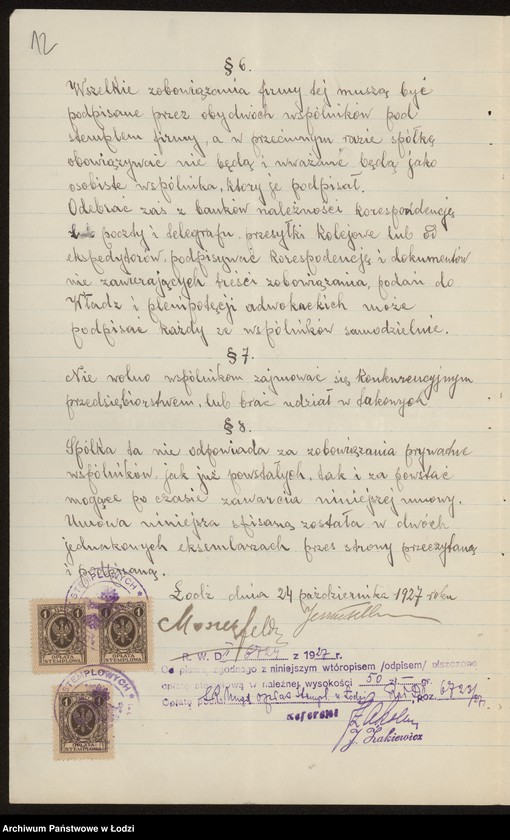 12
§ 6.
Wszelkie zobowiązania firmy tej muszą być
podpisane przez obydwóch wspólników pod
stemplem firmy, a w przeciwnym razie spółkę
obowiązywać nie będą i uważane będą jako
osobiste wspólnika, który je podpisał.
Odebrać zaś z banków należności korespondencję
z poczty i telegrafu, przesyłki kolejowe lub od
ekspedytorów, podpisywać korespodencję i dokumentów
nie zawierających treści zobowiązania, podań do
Władz i plenipotęcji adwokackich może
podpisać każdy ze wspólników samodzielnie.
§ 7.
Nie wolno wspólnikom zajmować się konkurencyjnym
przedsiębiorstwem, lub brać udział w takowych
§ 8.
Spółka ta nie odpowiada za zobowiązania prywatne
wspólników, jak już powstałych, tak i za powstać
mogące po czasie zawarcia niniejszej umowy.
Umowa niniejsza spisaną została w dwóch
jednakowych eksemlarzach przez strony przeczytaną
i podpisaną.
Łodź dnia 24 października 1927 roku
STEMPLOWYCH
1 1
OPŁATA STEMPLOWA OPŁATA STEMPLOWA
R. W. D. z 1927 r.
Od pisma zgodnego z niniejszym wtóropisem /odpisem/ uiszczono
opłatę stemplową w należnej wysokości 50 zł gr.
Opłaty Urząd opłat Stempl w Łodzi poz. 6723/
Referent
J. Żakiewicz
STEMPLOWYCH
1
OPŁATA STEMPLOWA
Archiwum Państwowe w Łodzi